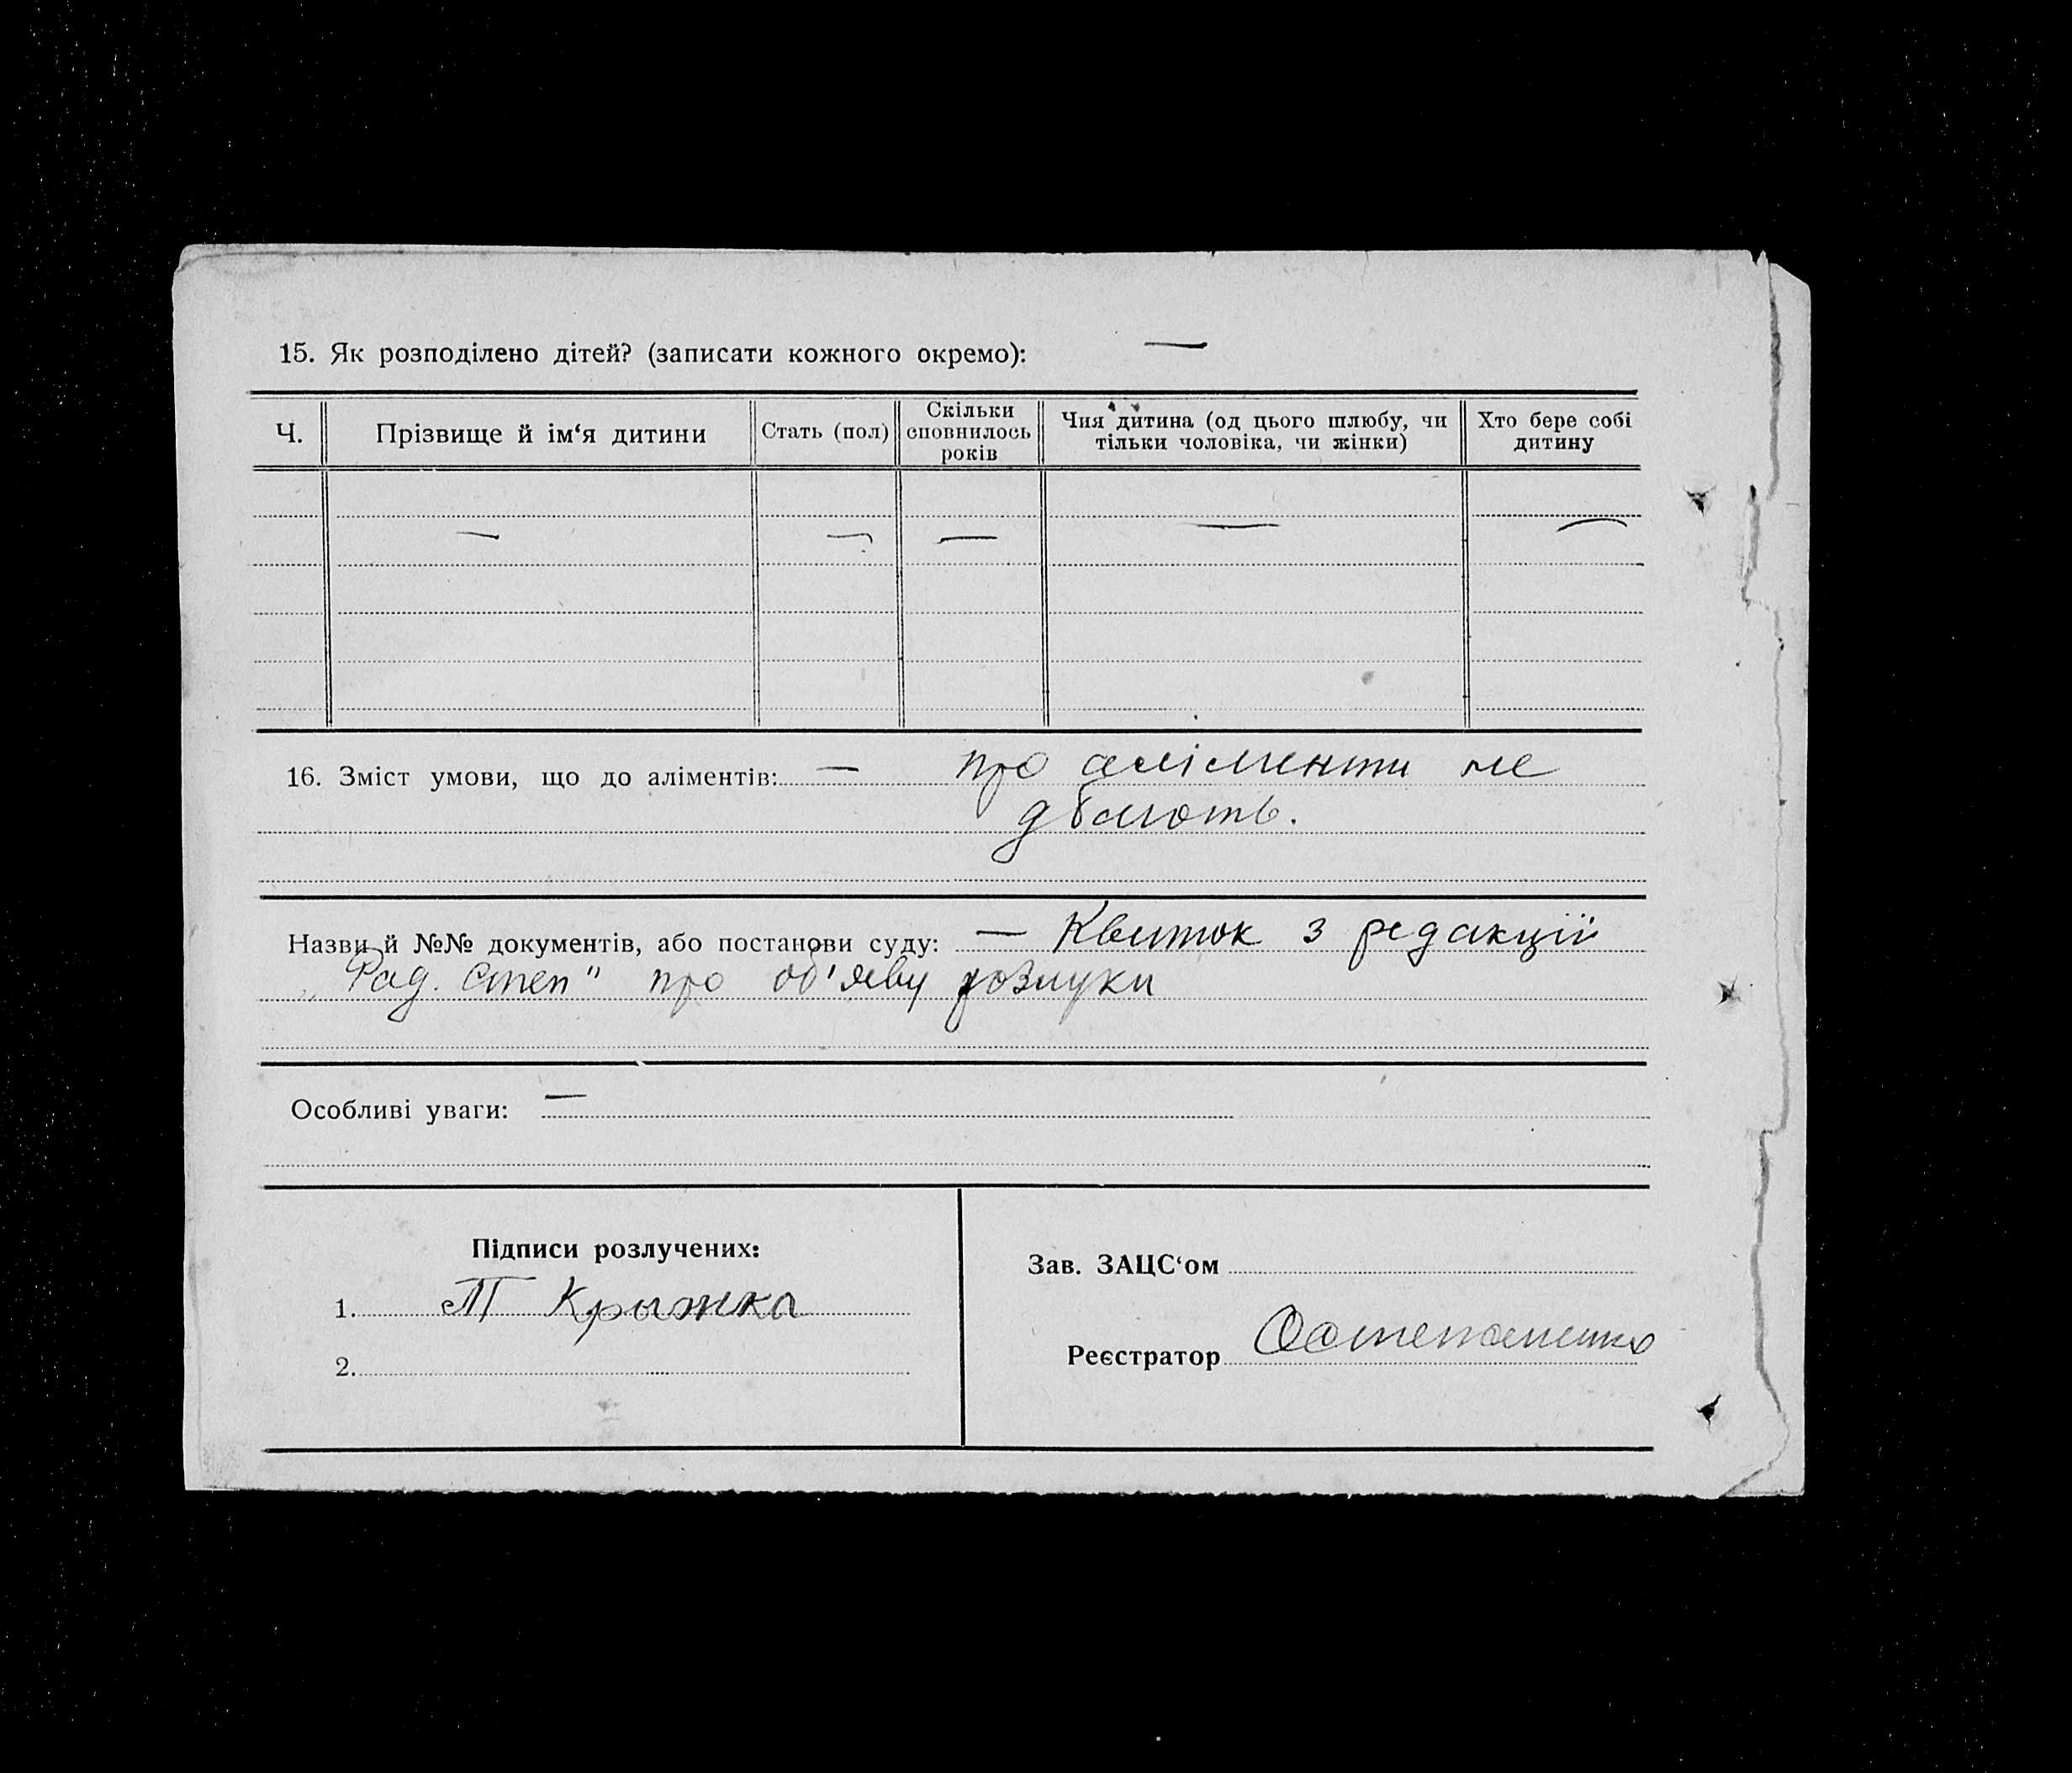 15. Як розподілено дітей? (записати кожного окремо): —
Ч.
Прізвище й ім‘я дитини
Стать (пол)
Скільки
сповнилось
років
Чия дитина (од цього шлюбу, чи
тільки чоловіка, чи жінки)
Хто бере собі
дитину
— — — — —
16. Зміст умови, що до аліментів: — про аліменти не
дбають.
Назви й №№ документів, або постанови суду: — Квиток з редакції
„Рад. Степ" про об'яву розлуки
Особливі уваги: —
Підписи розлучених:
1. Т Крыжка
2.
Зав. ЗАЦС‘ом
Реєстратор